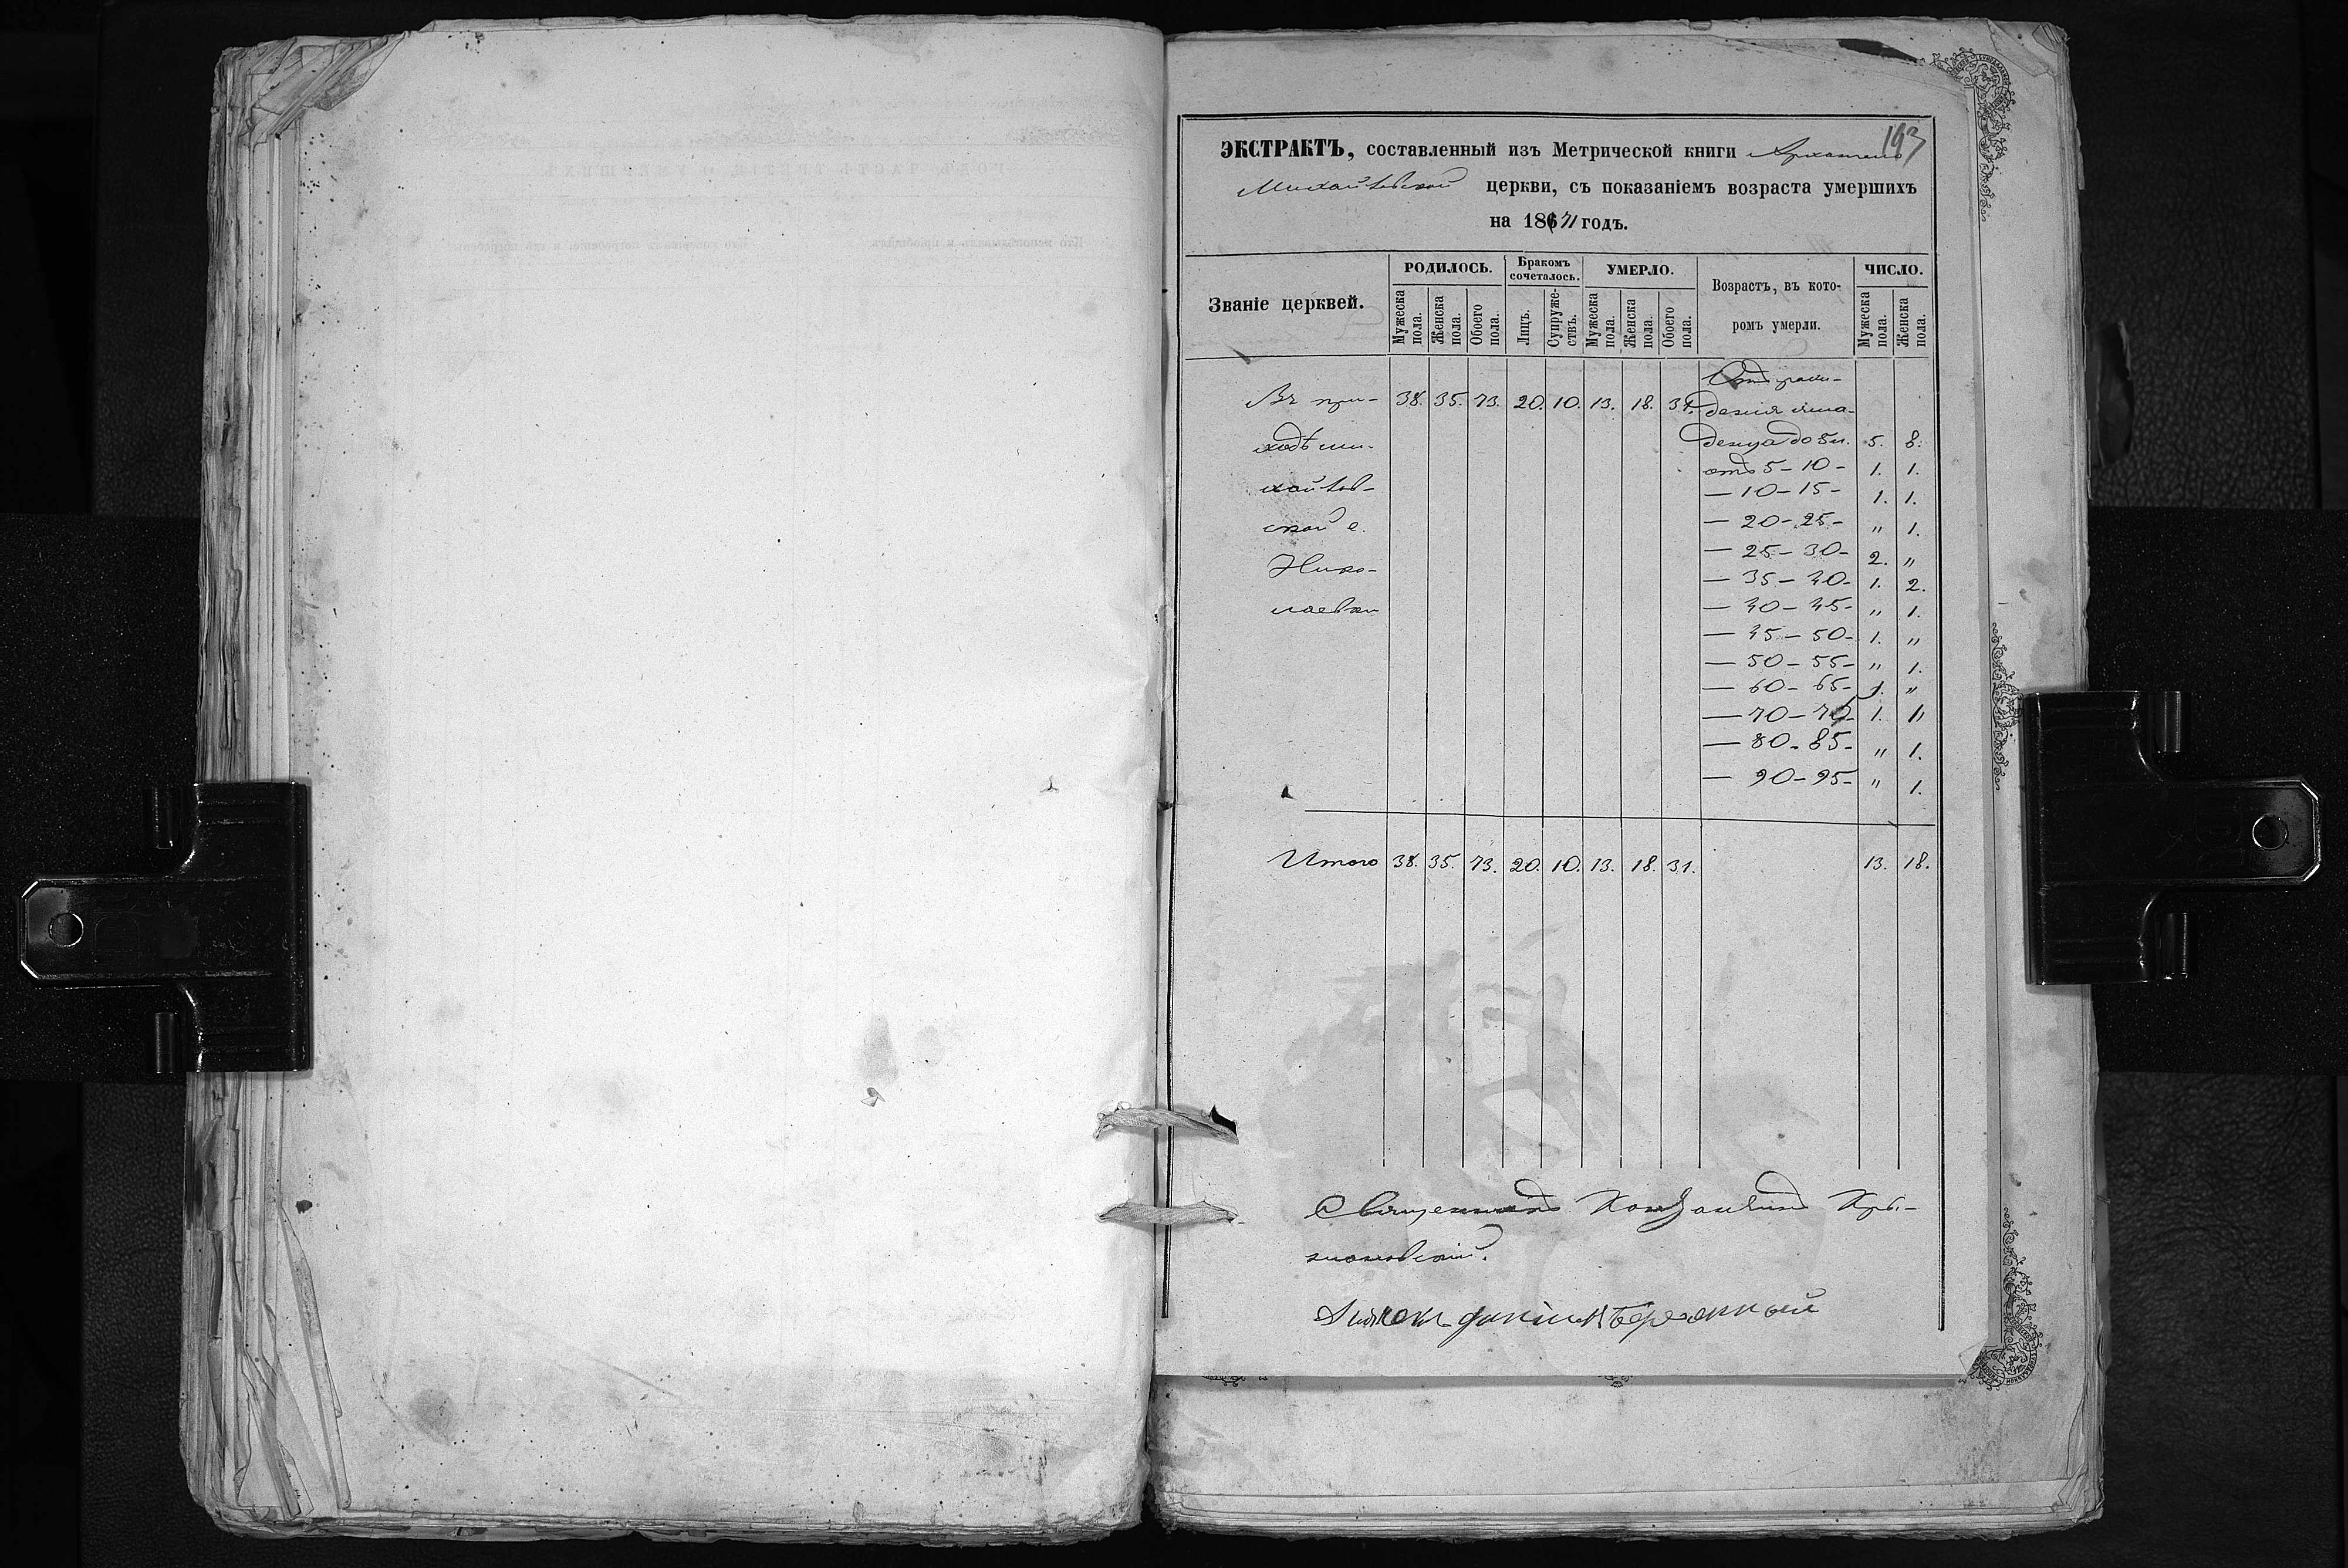 193
ЭКСТРАКТЪ, составленный изъ Метрической книги Архангело
Михайловской церкви, съ показаніемъ возраста умершихъ
на 18671 годъ.
Званіе церквей.
РОДИЛОСЬ. Бракомъ сочеталось. УМЕРЛО. Возрастъ, въ кото-
ромъ умерли. ЧИСЛО.
Мужеска пола. Женска пола. Обоего пола. Лицъ. Супруже-ствъ. Мужеска пола. Женска пола. Обоего пола. Мужеска пола. Женска пола.
Отъ рож-
Въ при- 38. 35. 73. 20. 10. 13. 18. 31. денія мла-
ходѣ Ми- денца до 5 л. 5. 8.
отъ 5-10- 1. 1.
хайлов- — 10-15- 1. 1.
ской с. — 20-25- „ 1.
Нико- — 25-30- 2. „
— 35-40- 1. 2.
лаевки — 40-45- „ 1.
— 45-50- 1. „
— 50-55- „ 1.
— 60-65- 1. „
— 70-75- 1. „
— 80-85- „ 1.
— 90-95- „ 1.
Итого 38. 35. 73. 20. 10. 13. 18. 31. 13. 18.
Священникъ Константинъ Кры-
жановскій.
Дьячокъ Даніилъ Бережный